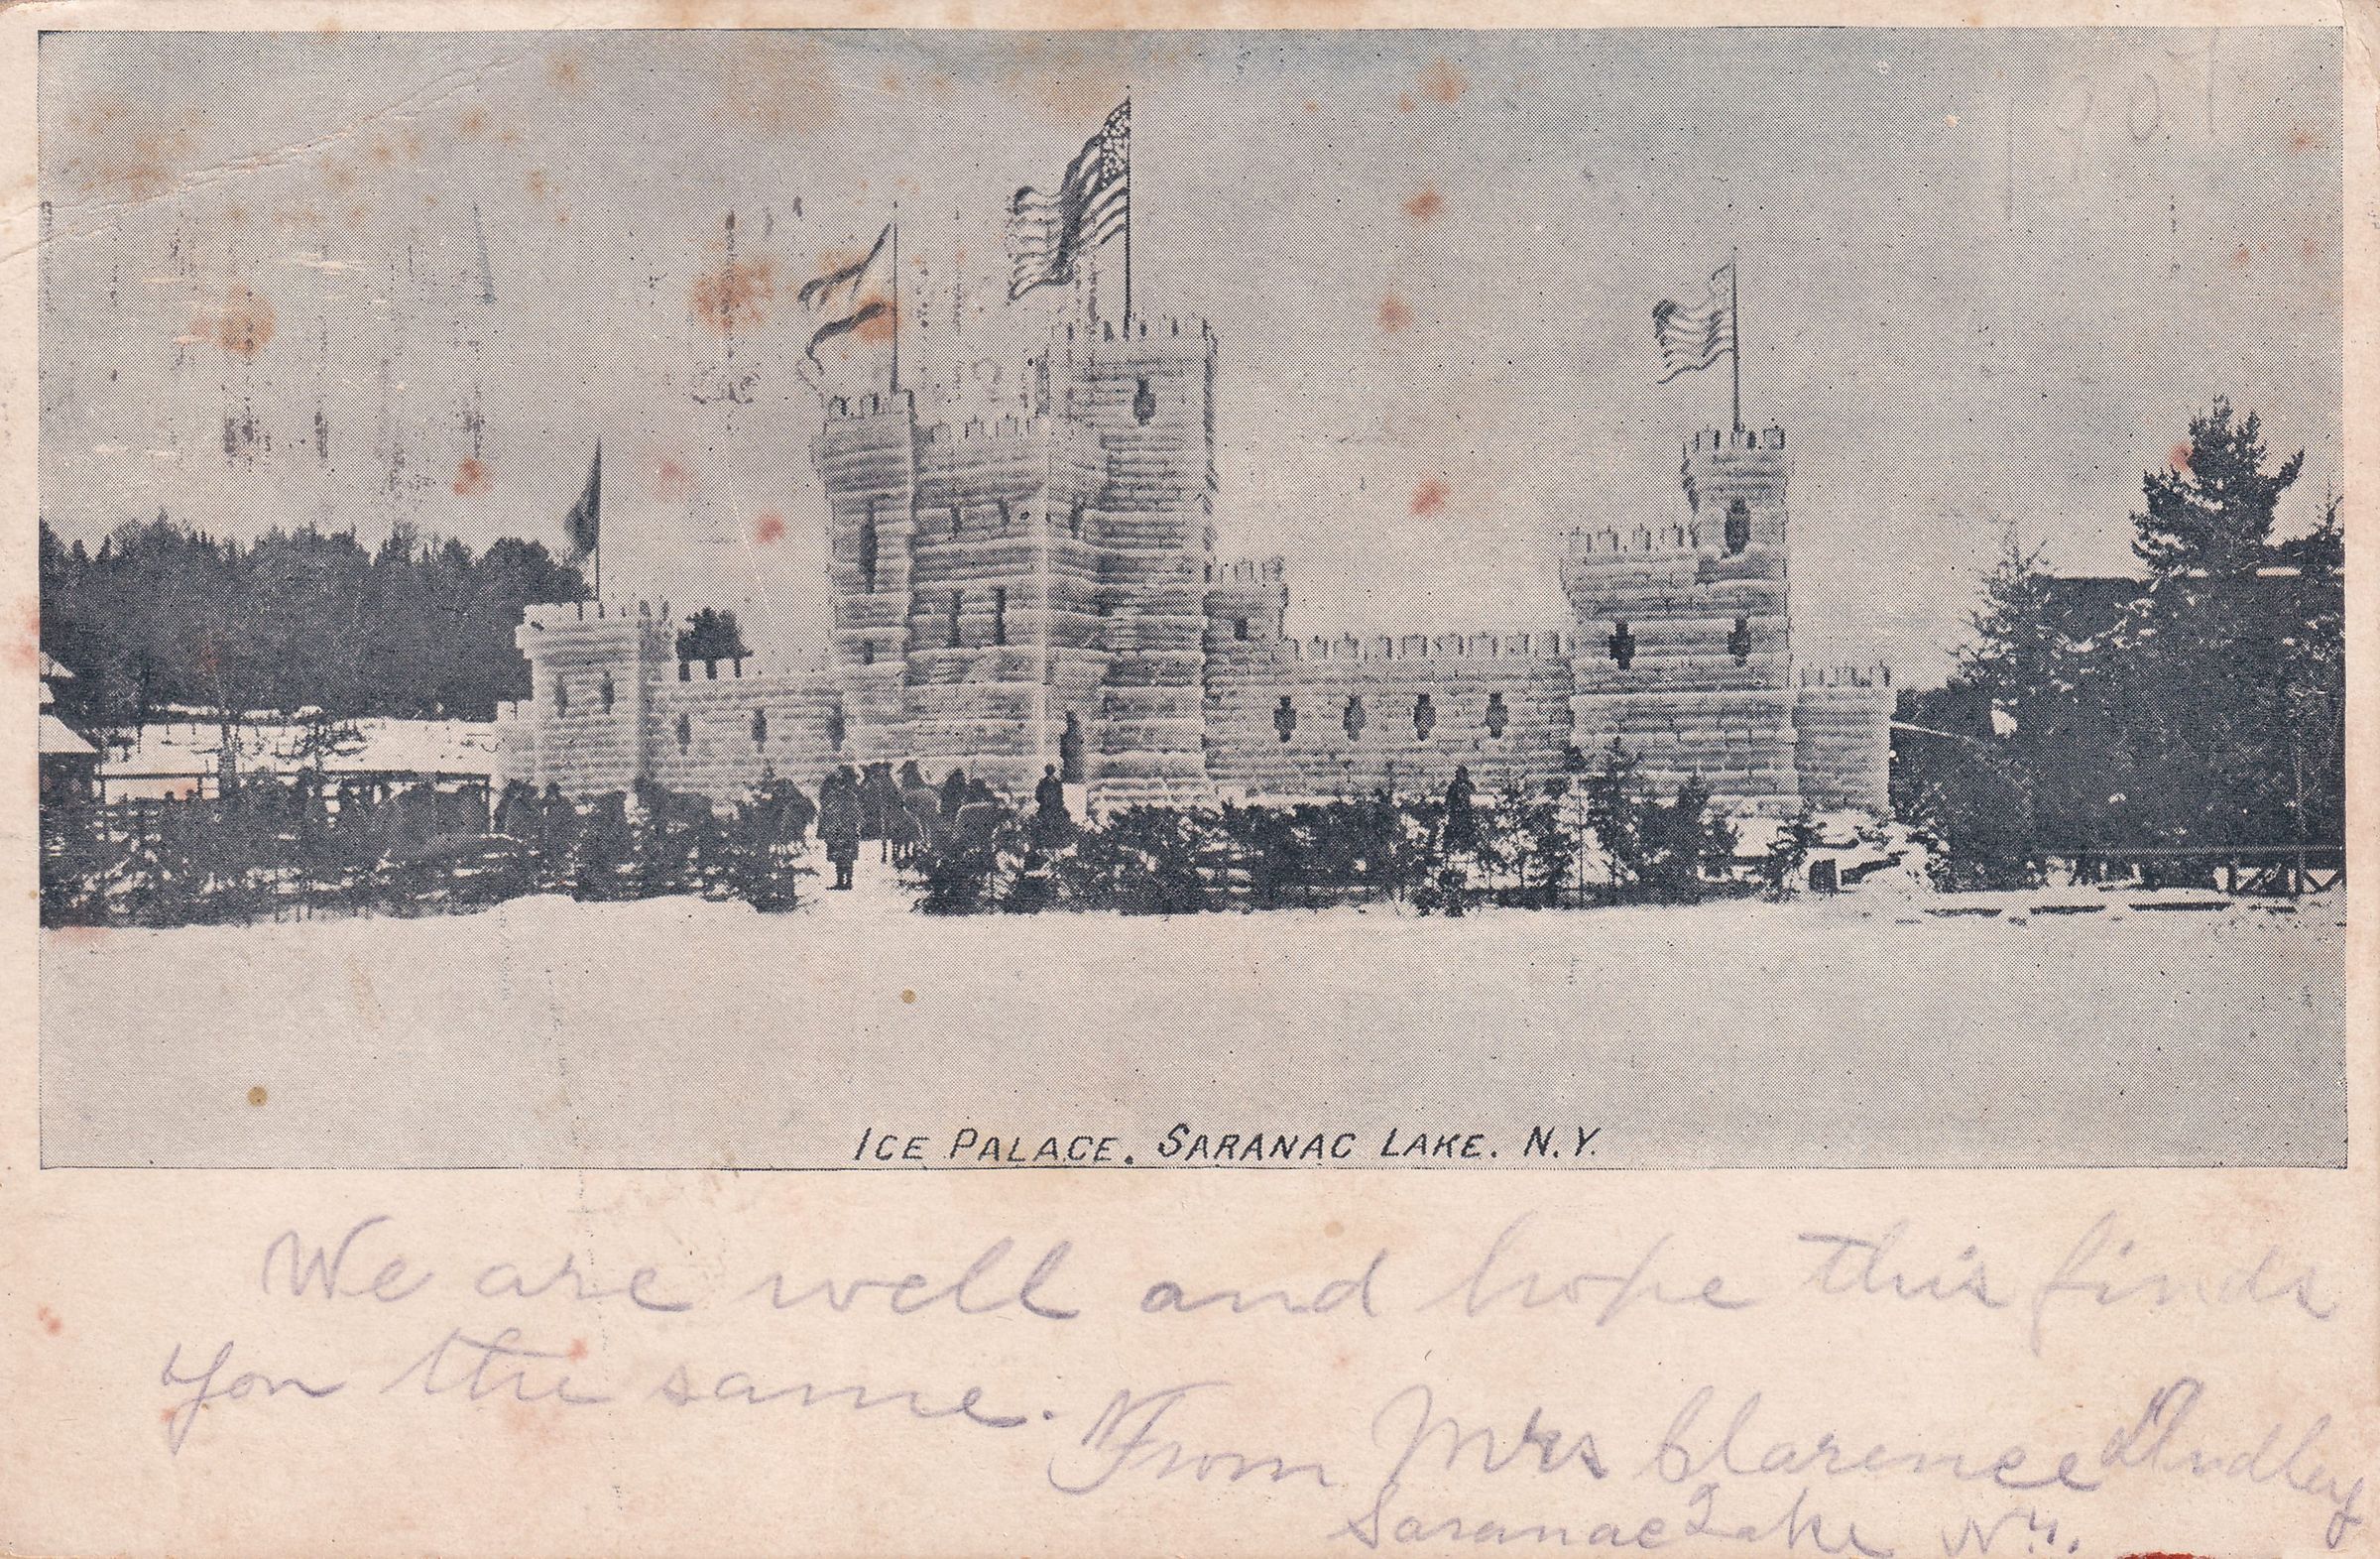 1907
ICE PALACE. SARANAC LAKE. N.Y.
We are well and hope this finds
you the same.
From Mrs Clarence Dudley
Saranac Lake N.Y.